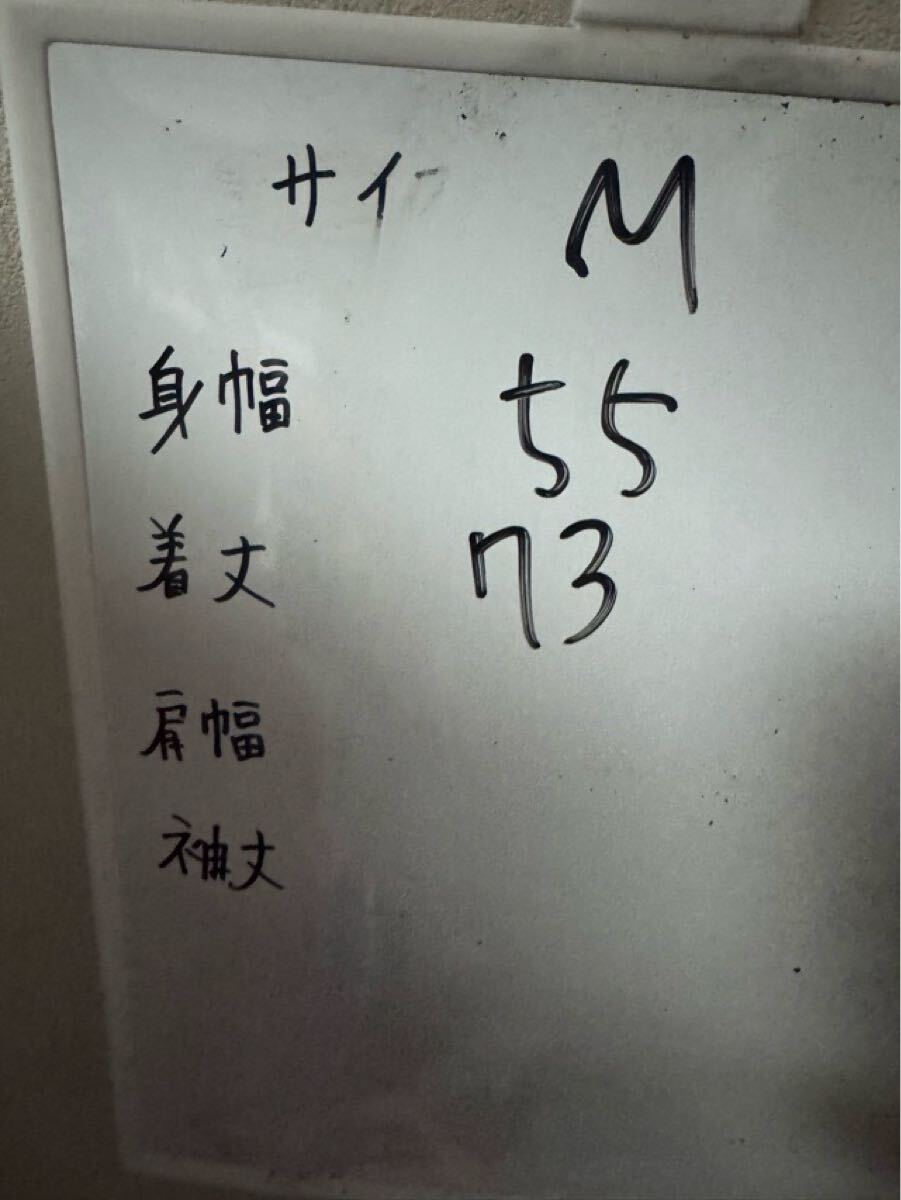 サイ M
身幅 55
着丈 73
肩幅
袖丈